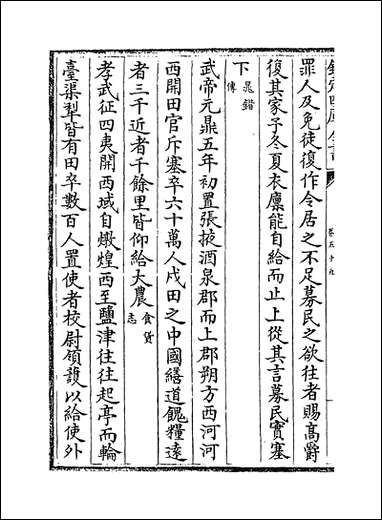 欽定四庫全書
卷五十九
罪人及免徒復作令居之不足募民之欲往者賜高爵
復其家予冬夏衣廩能自給而止上從其言募民實塞
下晁錯傳
武帝元鼎五年初置張掖酒泉郡而上郡朔方西河河
西開田官斥塞卒六十萬人戍田之中國繕道餽糧遠
者三千近者千餘里皆仰給大農食貨志
孝武征四夷開西域自燉煌西至鹽津往往起亭而輪
臺渠犁皆有田卒數百人置使者校尉領䕶以給使外